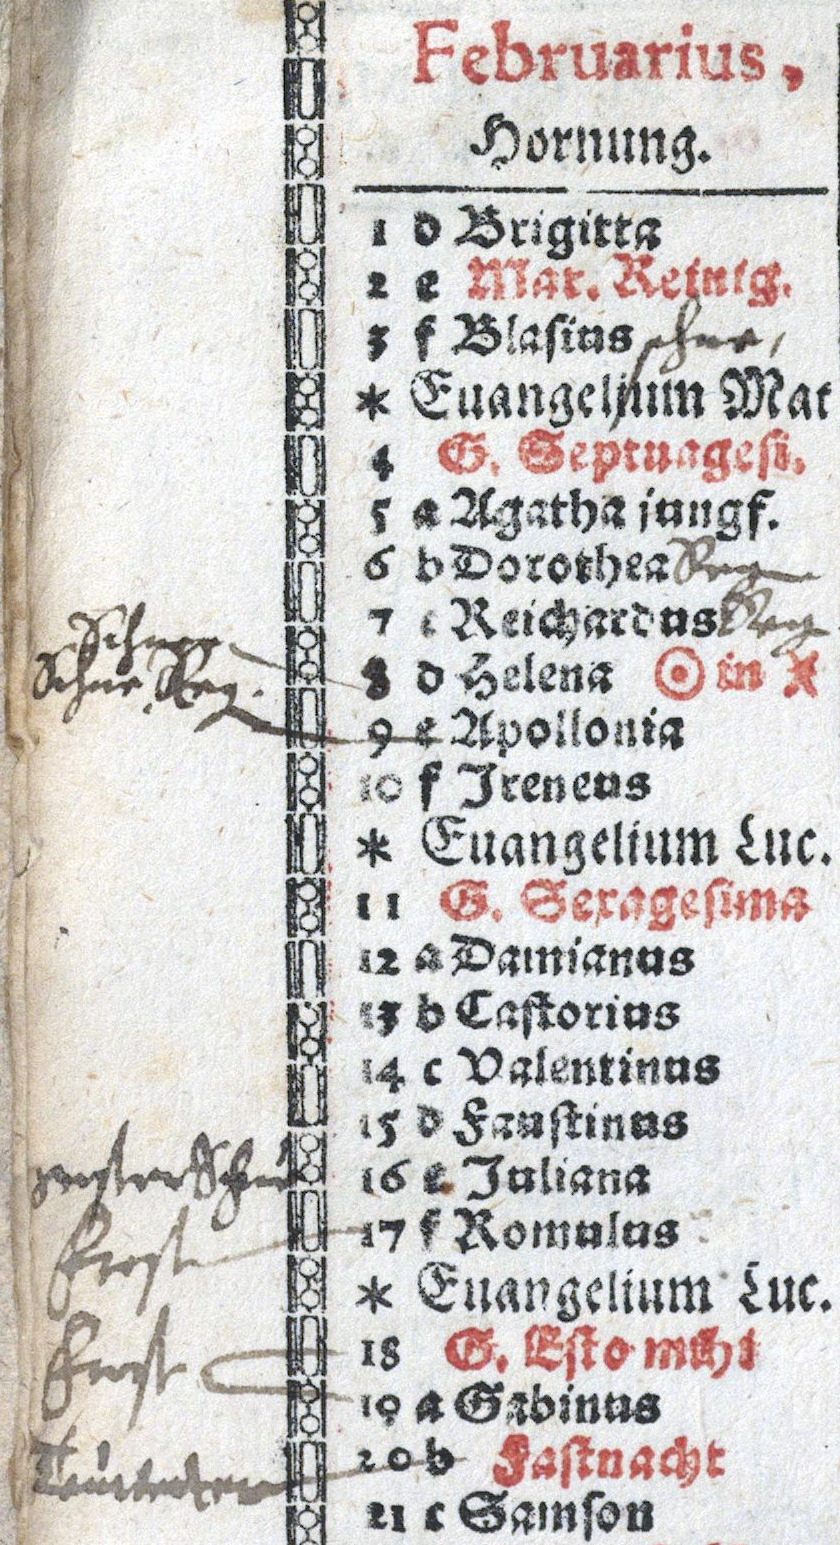 Februarius,
Hornung.
1 d Brigitta
2 e Mar. Reinig.
3 f Blasius
* Euangelium Mat
4 G. Septuagesi.
5 a Agatha jungf.
6 b Dorothea Reg
7 c Reichardus Reg
8 d Helena ☉ in
Schne Reg.
9 e Apollonia
10 f Ireneus
* Euangelium Luc.
11 G. Sexagesima
12 a Damianus
13 b Castorius
14 c Valentinus
15 d Faustinus
16 e Juliana
Frost
17 f Romulus
* Euangelium Luc.
Frost
18 G. Esto mihi
19 a Gabinus
20 b Fastnacht
21 c Samson